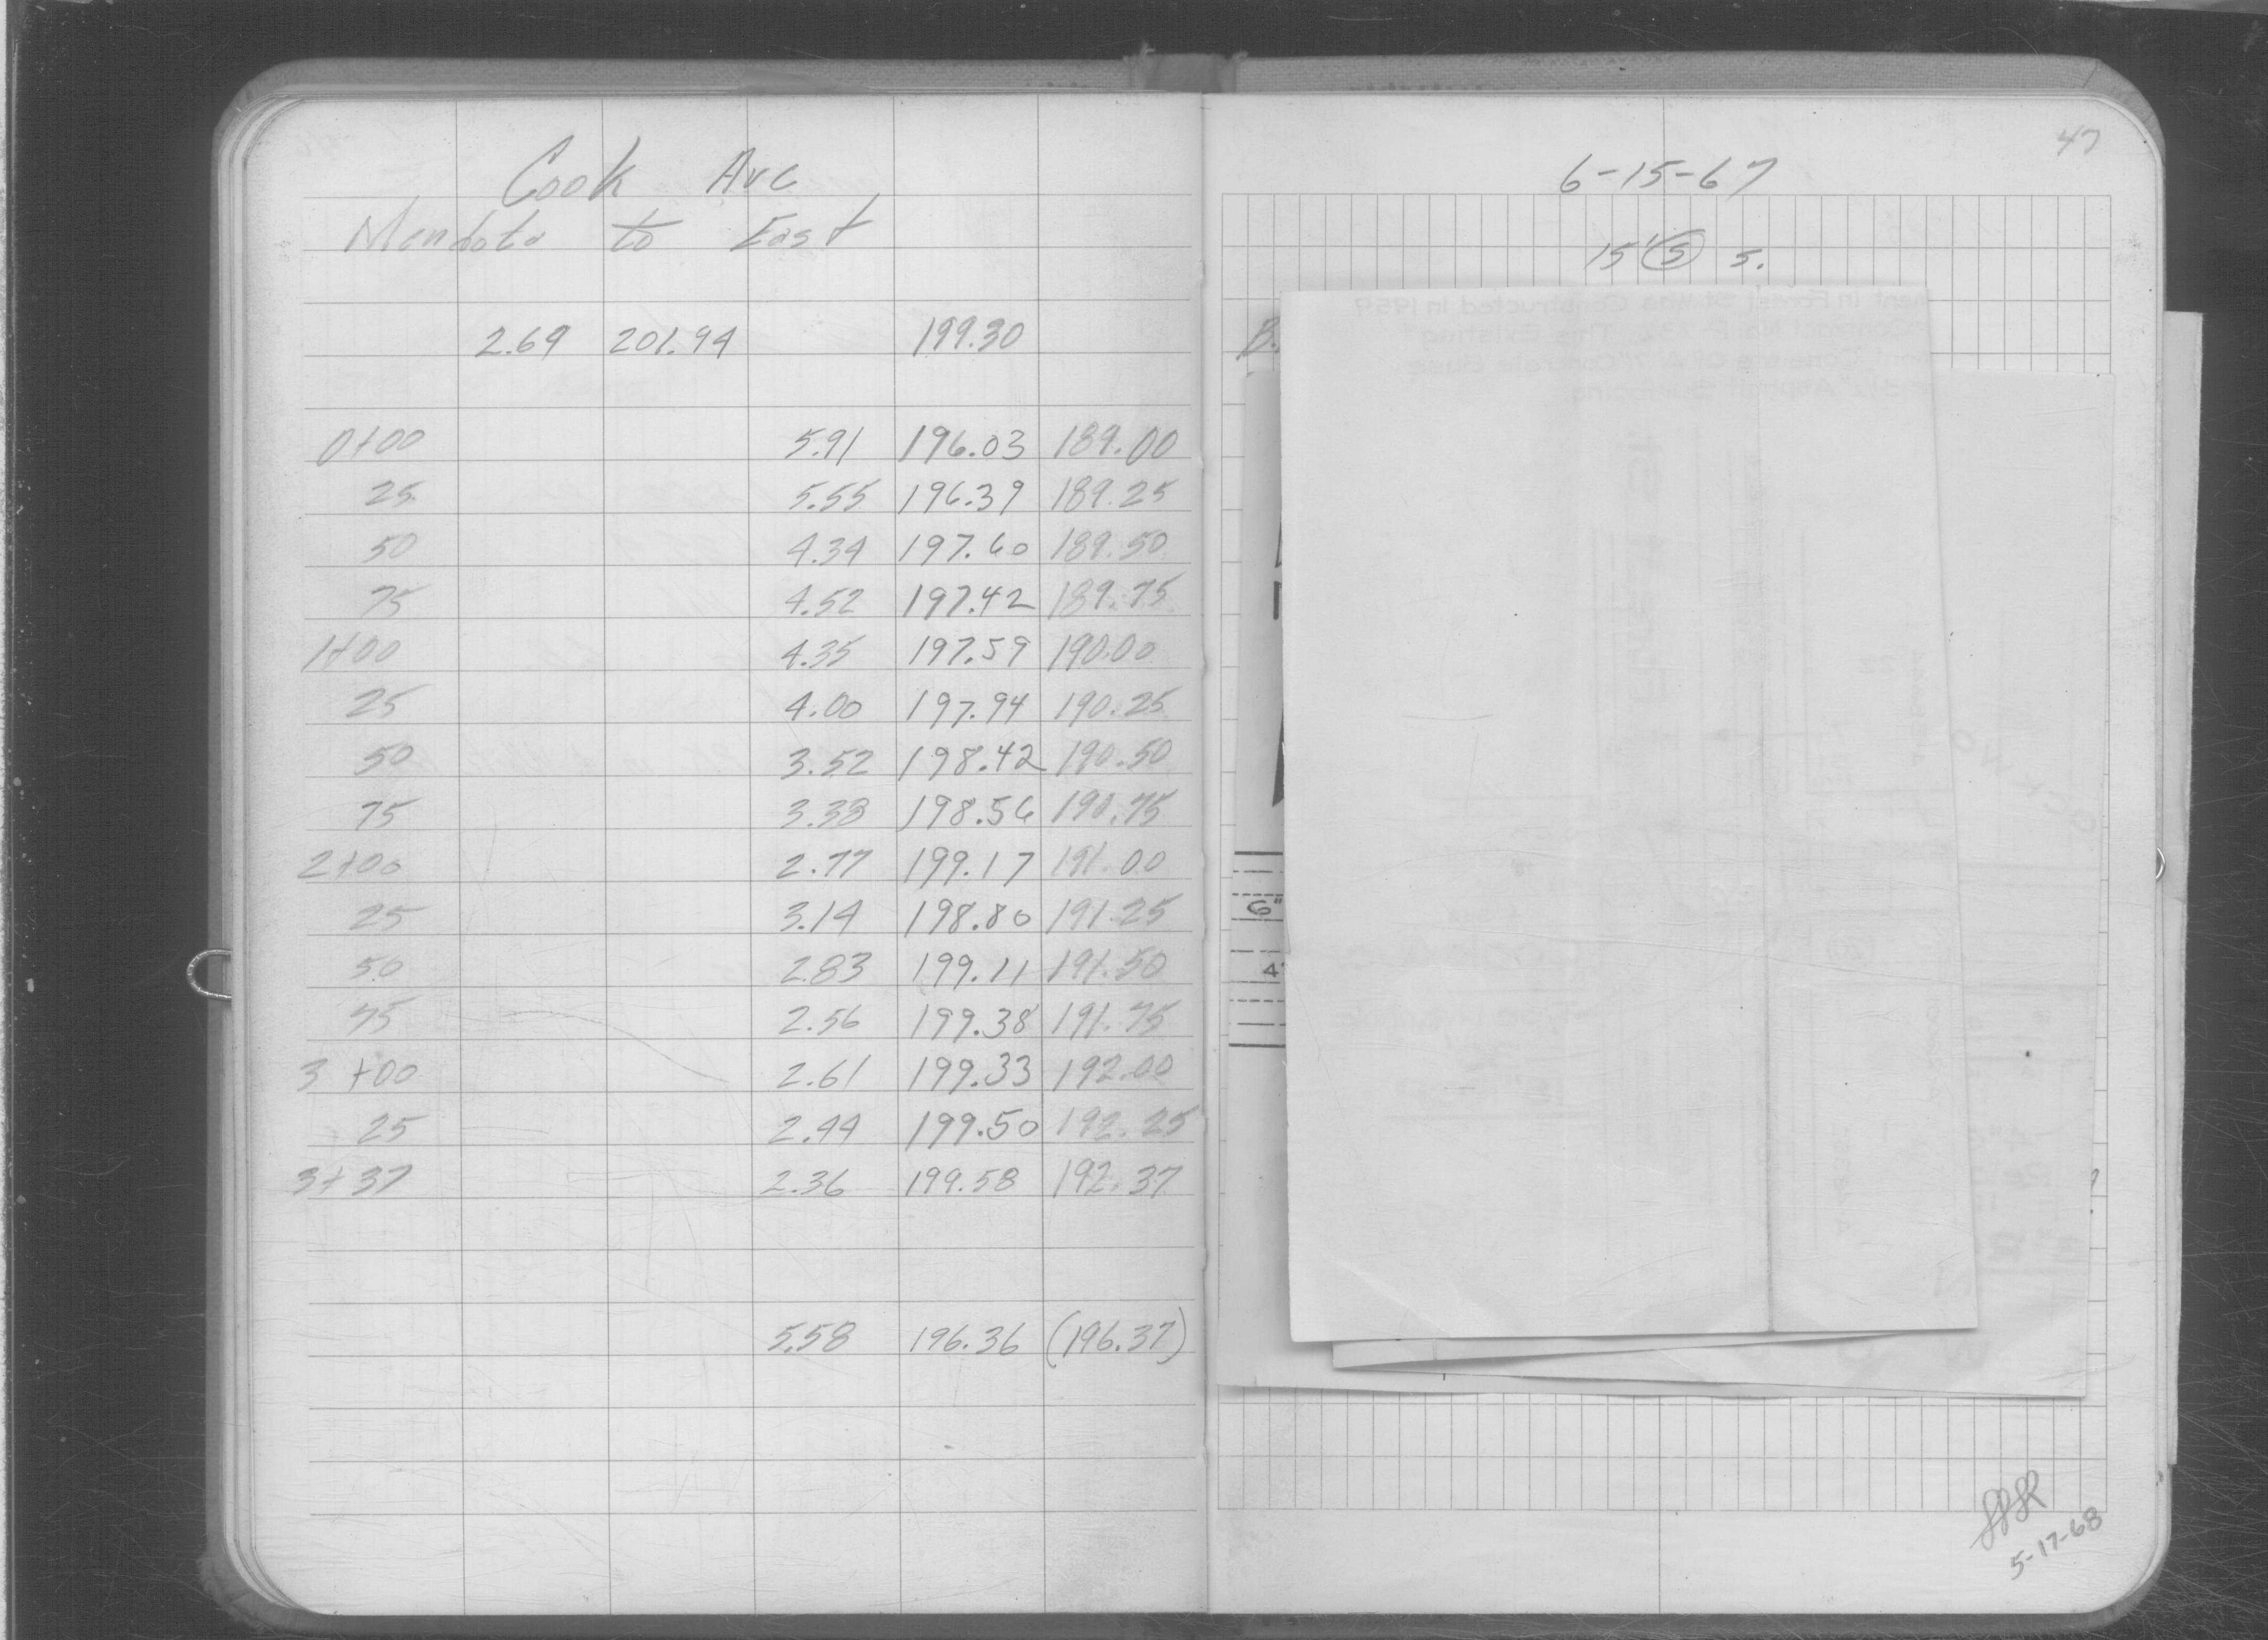 Cook Ave
Mendota to East
2.69 201.94 199.30
0+00 5.91 196.03 189.00
25 5.55 196.39 189.25
50 4.34 197.60 189.50
75 4.52 197.42 189.75
1+00 4.35 197.59 190.00
25 4.00 197.94 190.25
50 3.52 198.42 190.50
75 3.38 198.56 190.75
2+00 2.77 199.17 191.00
25 3.14 198.80 191.25
50 2.83 199.11 191.50
75 2.56 199.38 191.75
3+00 2.61 199.33 192.00
25 2.44 199.50 192.25
3+37 2.36 199.58 192.37
5.58 196.36 (196.37)
47
6-15-67
15' S S.
B.
6"
4"
5-17-68